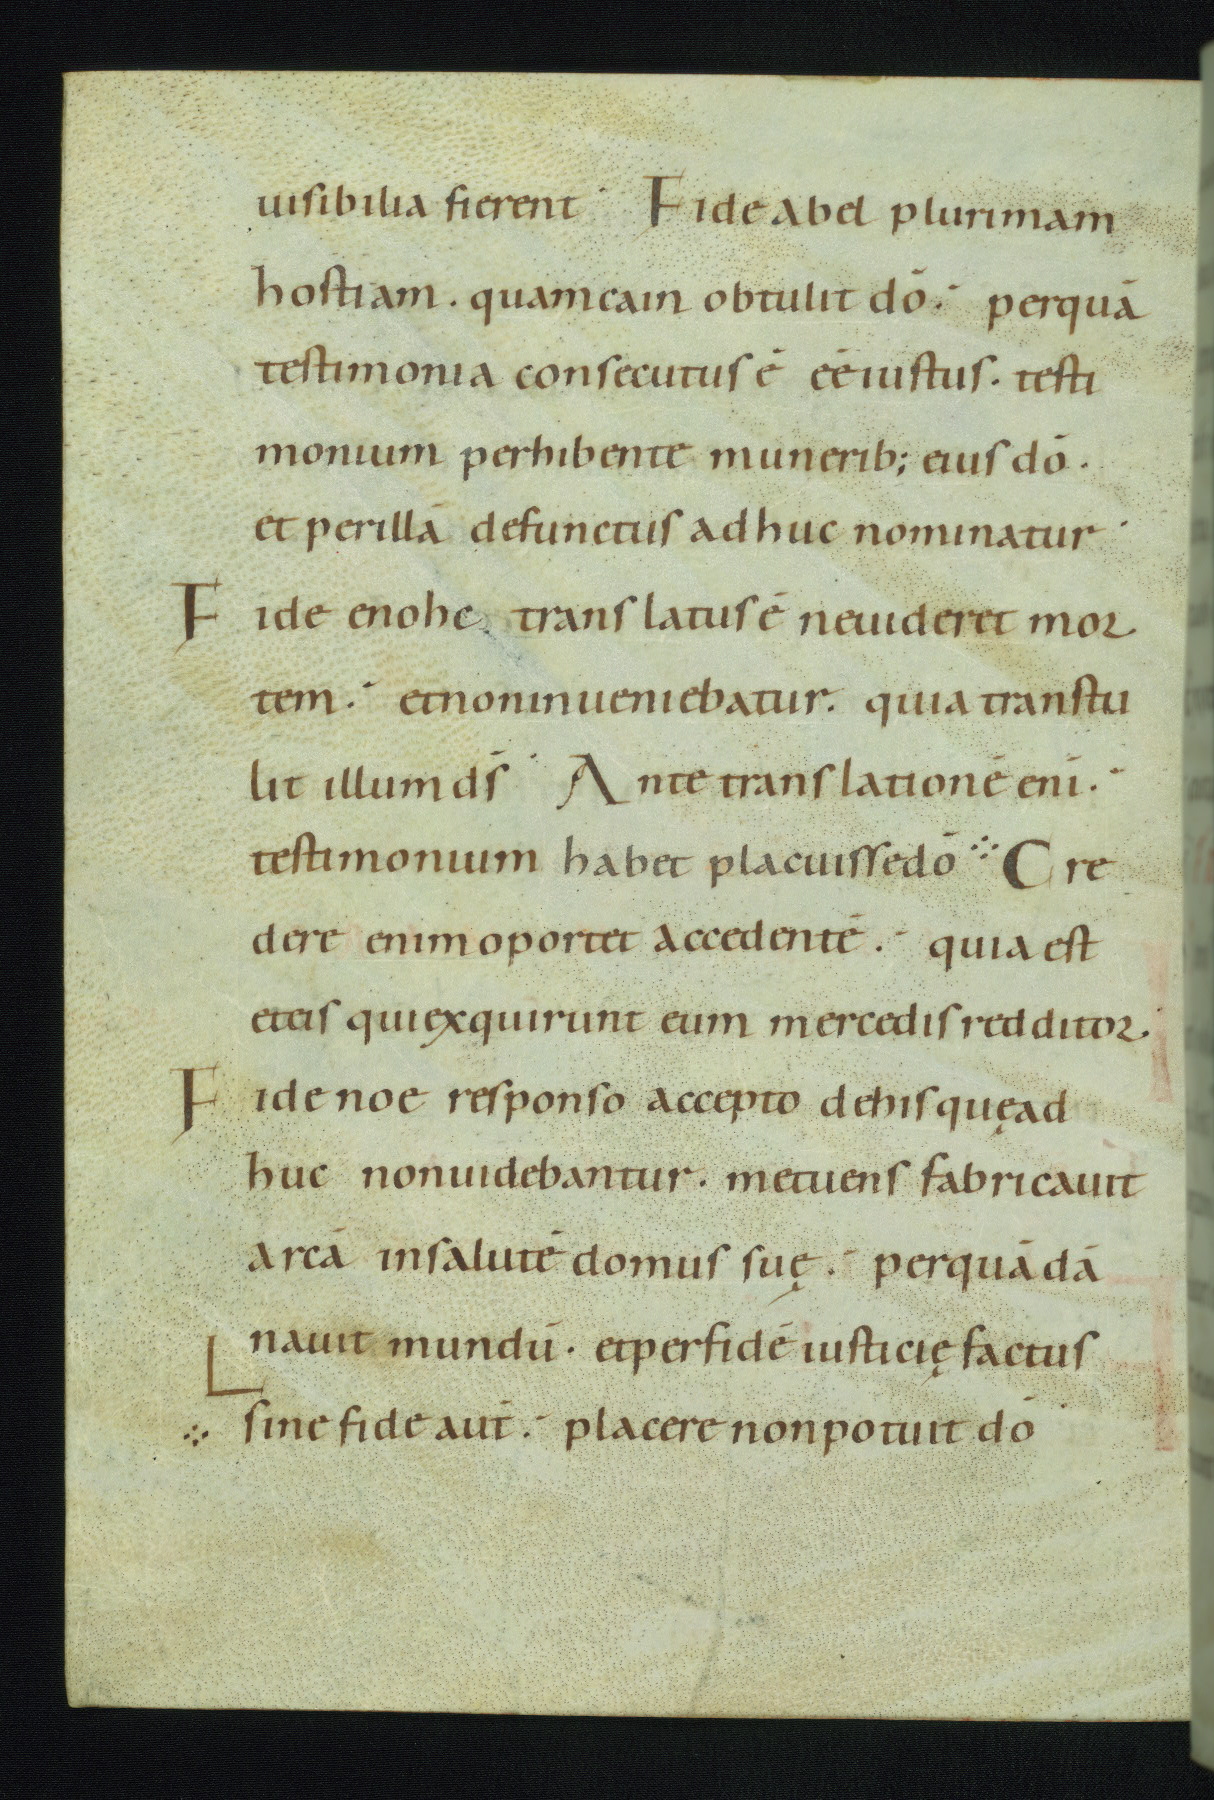 uisibilia fierent· Fide abel plurimam
hostiam. quam cain obtulit dō. perquā
testimonia consecutus ē eē iustus. testi
monium perhibente munerib; eius dō.
et per illā defunctus adhuc nominatur
Fide enohc translatus ē ne uideret mor
tem. et non inueniebatur. quia transtu
lit illum ds̄ Ante translationē eni̅.
testimonium habet placuisse dō ⁘ Cre
dere enim oportet accedentē. quia est
et eis qui exquirunt eum mercedis redditor.
Fide noe responso accepto de his quę ad
huc non uidebantur. metuens fabricauit
arcā in salutē domus suę. per quā dā
nauit mundū. et per fidē iusticię factus
⁘ sine fide aut̄. placere non potuit dō